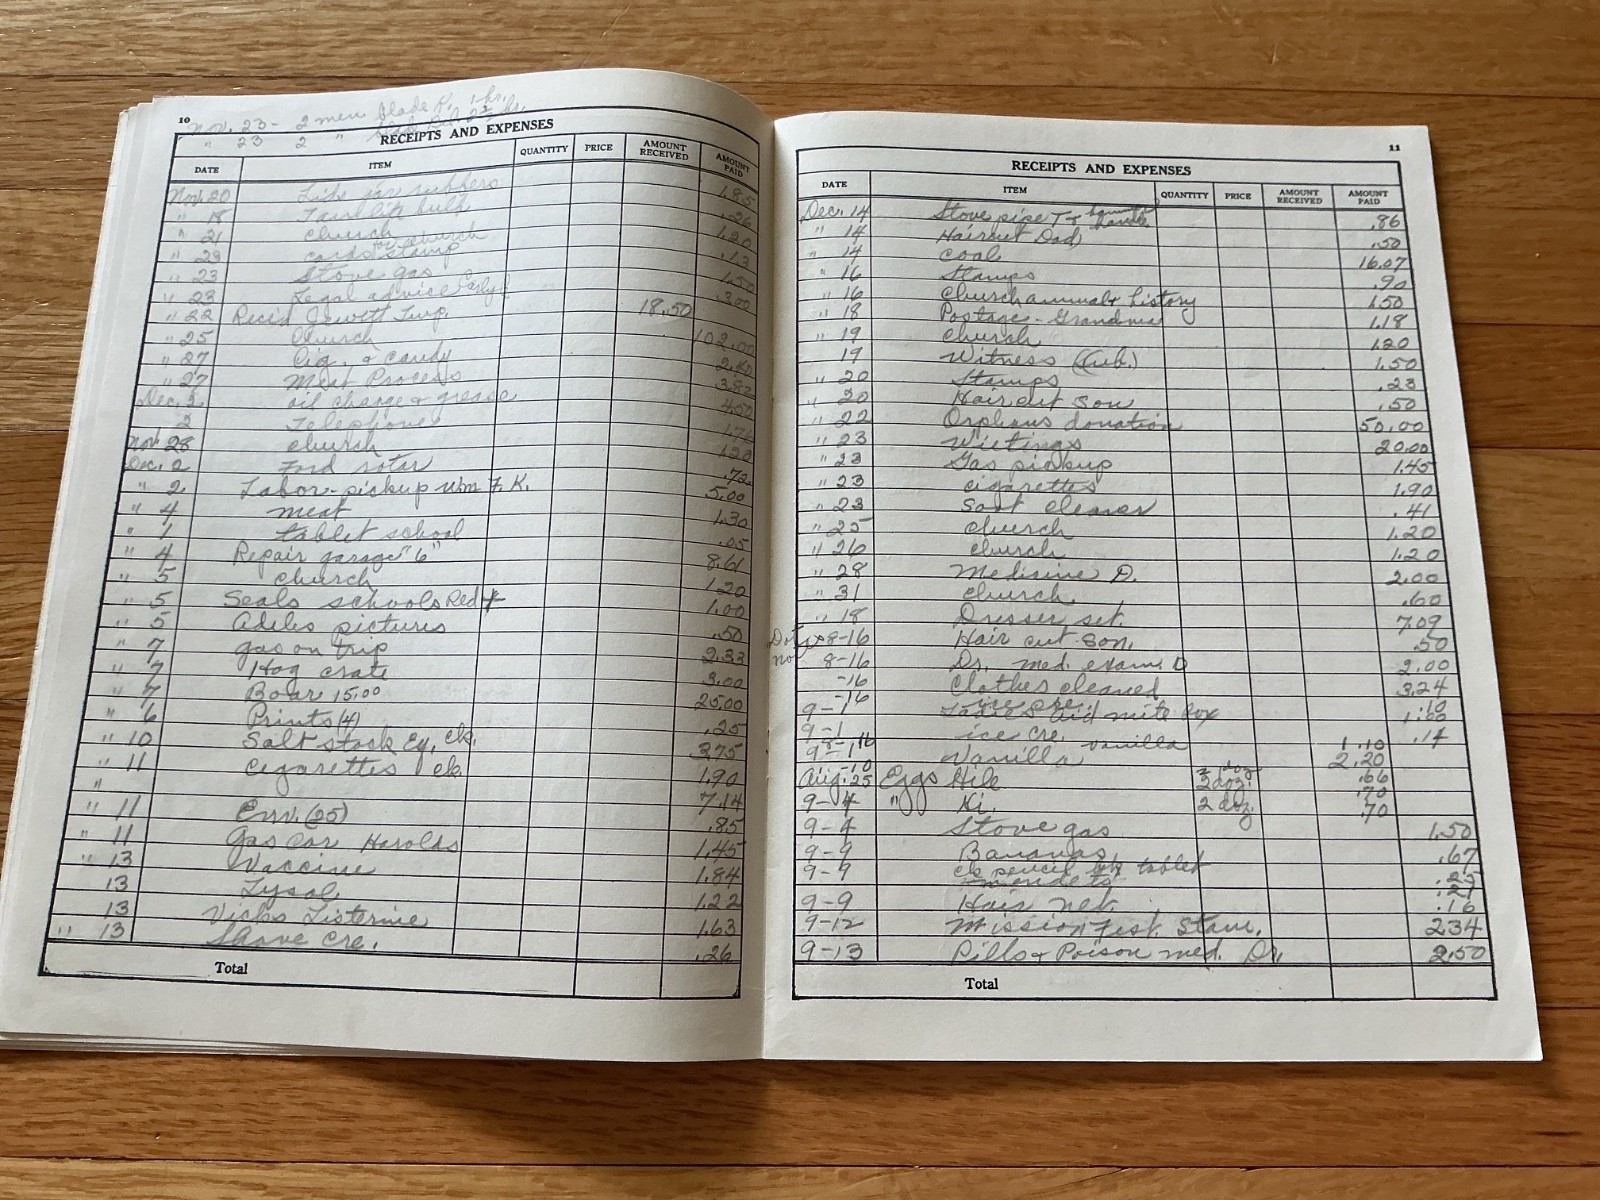 10
Nov. 23 - 2 men Blade R. 1 hr.
" 23 2 "
RECEIPTS AND EXPENSES
DATE ITEM QUANTITY PRICE AMOUNT RECEIVED AMOUNT PAID
Nov. 20 1.85
" 18 bulb .26
" 21 Church 1.20
" 23 cards for church stamp .13
" 23 Stove gas 1.50
" 23 Legal advice 3.00
" 22 Rec'd Jewett Twp. 18.50
" 25 Church 102.00
" 27 Cig. & candy
" 27 Meat Process 3.82
Dec. 2 oil change & grease 4.50
2 Telephone 1.76
Nov. 28 church 1.20
Dec. 2 Ford rotor .72
" 2 Labor-pickup Wm F. K. 5.00
" 4 meat 1.30
" 1 tablet school .05
" 4 Repair garage "6" 8.61
" 5 church 1.20
" 5 Seals schools Red + 1.00
" 5 pictures .50
" 7 gas on trip 2.33
" 7 Hog crate 3.00
" 7 Boar 15.00 25.00
" 6 Prints (4) .25
" 10 Salt stock Ex. ck. 3.75
" 11 cigarettes ck. 1.90
" 7.14
" 11 Env. (25) .85
" 11 Gas Car Harolds 1.45
" 13 Vaccine 1.84
13 Lysol 1.22
13 Vicks Listerine 1.63
" 13 Shave cre. .26
Total
11
RECEIPTS AND EXPENSES
DATE ITEM QUANTITY PRICE AMOUNT RECEIVED AMOUNT PAID
Dec. 14 Stove pipe T + handle .86
" 14 Haircut Dad .50
" 14 Coal 16.07
" 16 Stamps .90
" 16 Church annual & history 1.50
" 18 Postage - Grandma 1.18
" 19 church 1.20
19 Witness (sub.) 1.50
" 20 Stamps .23
" 20 Haircut Son .50
" 22 Orphans donation 50.00
" 23 20.00
" 23 Gas pickup 1.45
" 23 cigarettes 1.90
" 23 Soot cleaner .41
" 25 church 1.20
" 26 church 1.20
" 28 Medicine D. 2.00
" 31 church .60
" 18 Dresser set. 7.09
8-16 Hair cut Son. .50
8-16 Dr. med. exam. D 2.00
-16 Clothes cleaned 3.24
-16 ice cre. .10
9-1 Ladies Aid mite box 1.00
9-1 ice cre. .14
8-16 vanilla 1.10
Vanilla 2.20
Aug. 25 Eggs Hile 2 doz. .66
.70
9-4 " Ki. 2 doz. .70
9-4 Stove gas 1.50
9-9 Bananas .67
9-9 ck pencil tablet .25
9-9 Hair net .16
9-12 Mission Fest. Stan. 2.34
9-13 Pills & Poison med. Dr. 2.50
Total